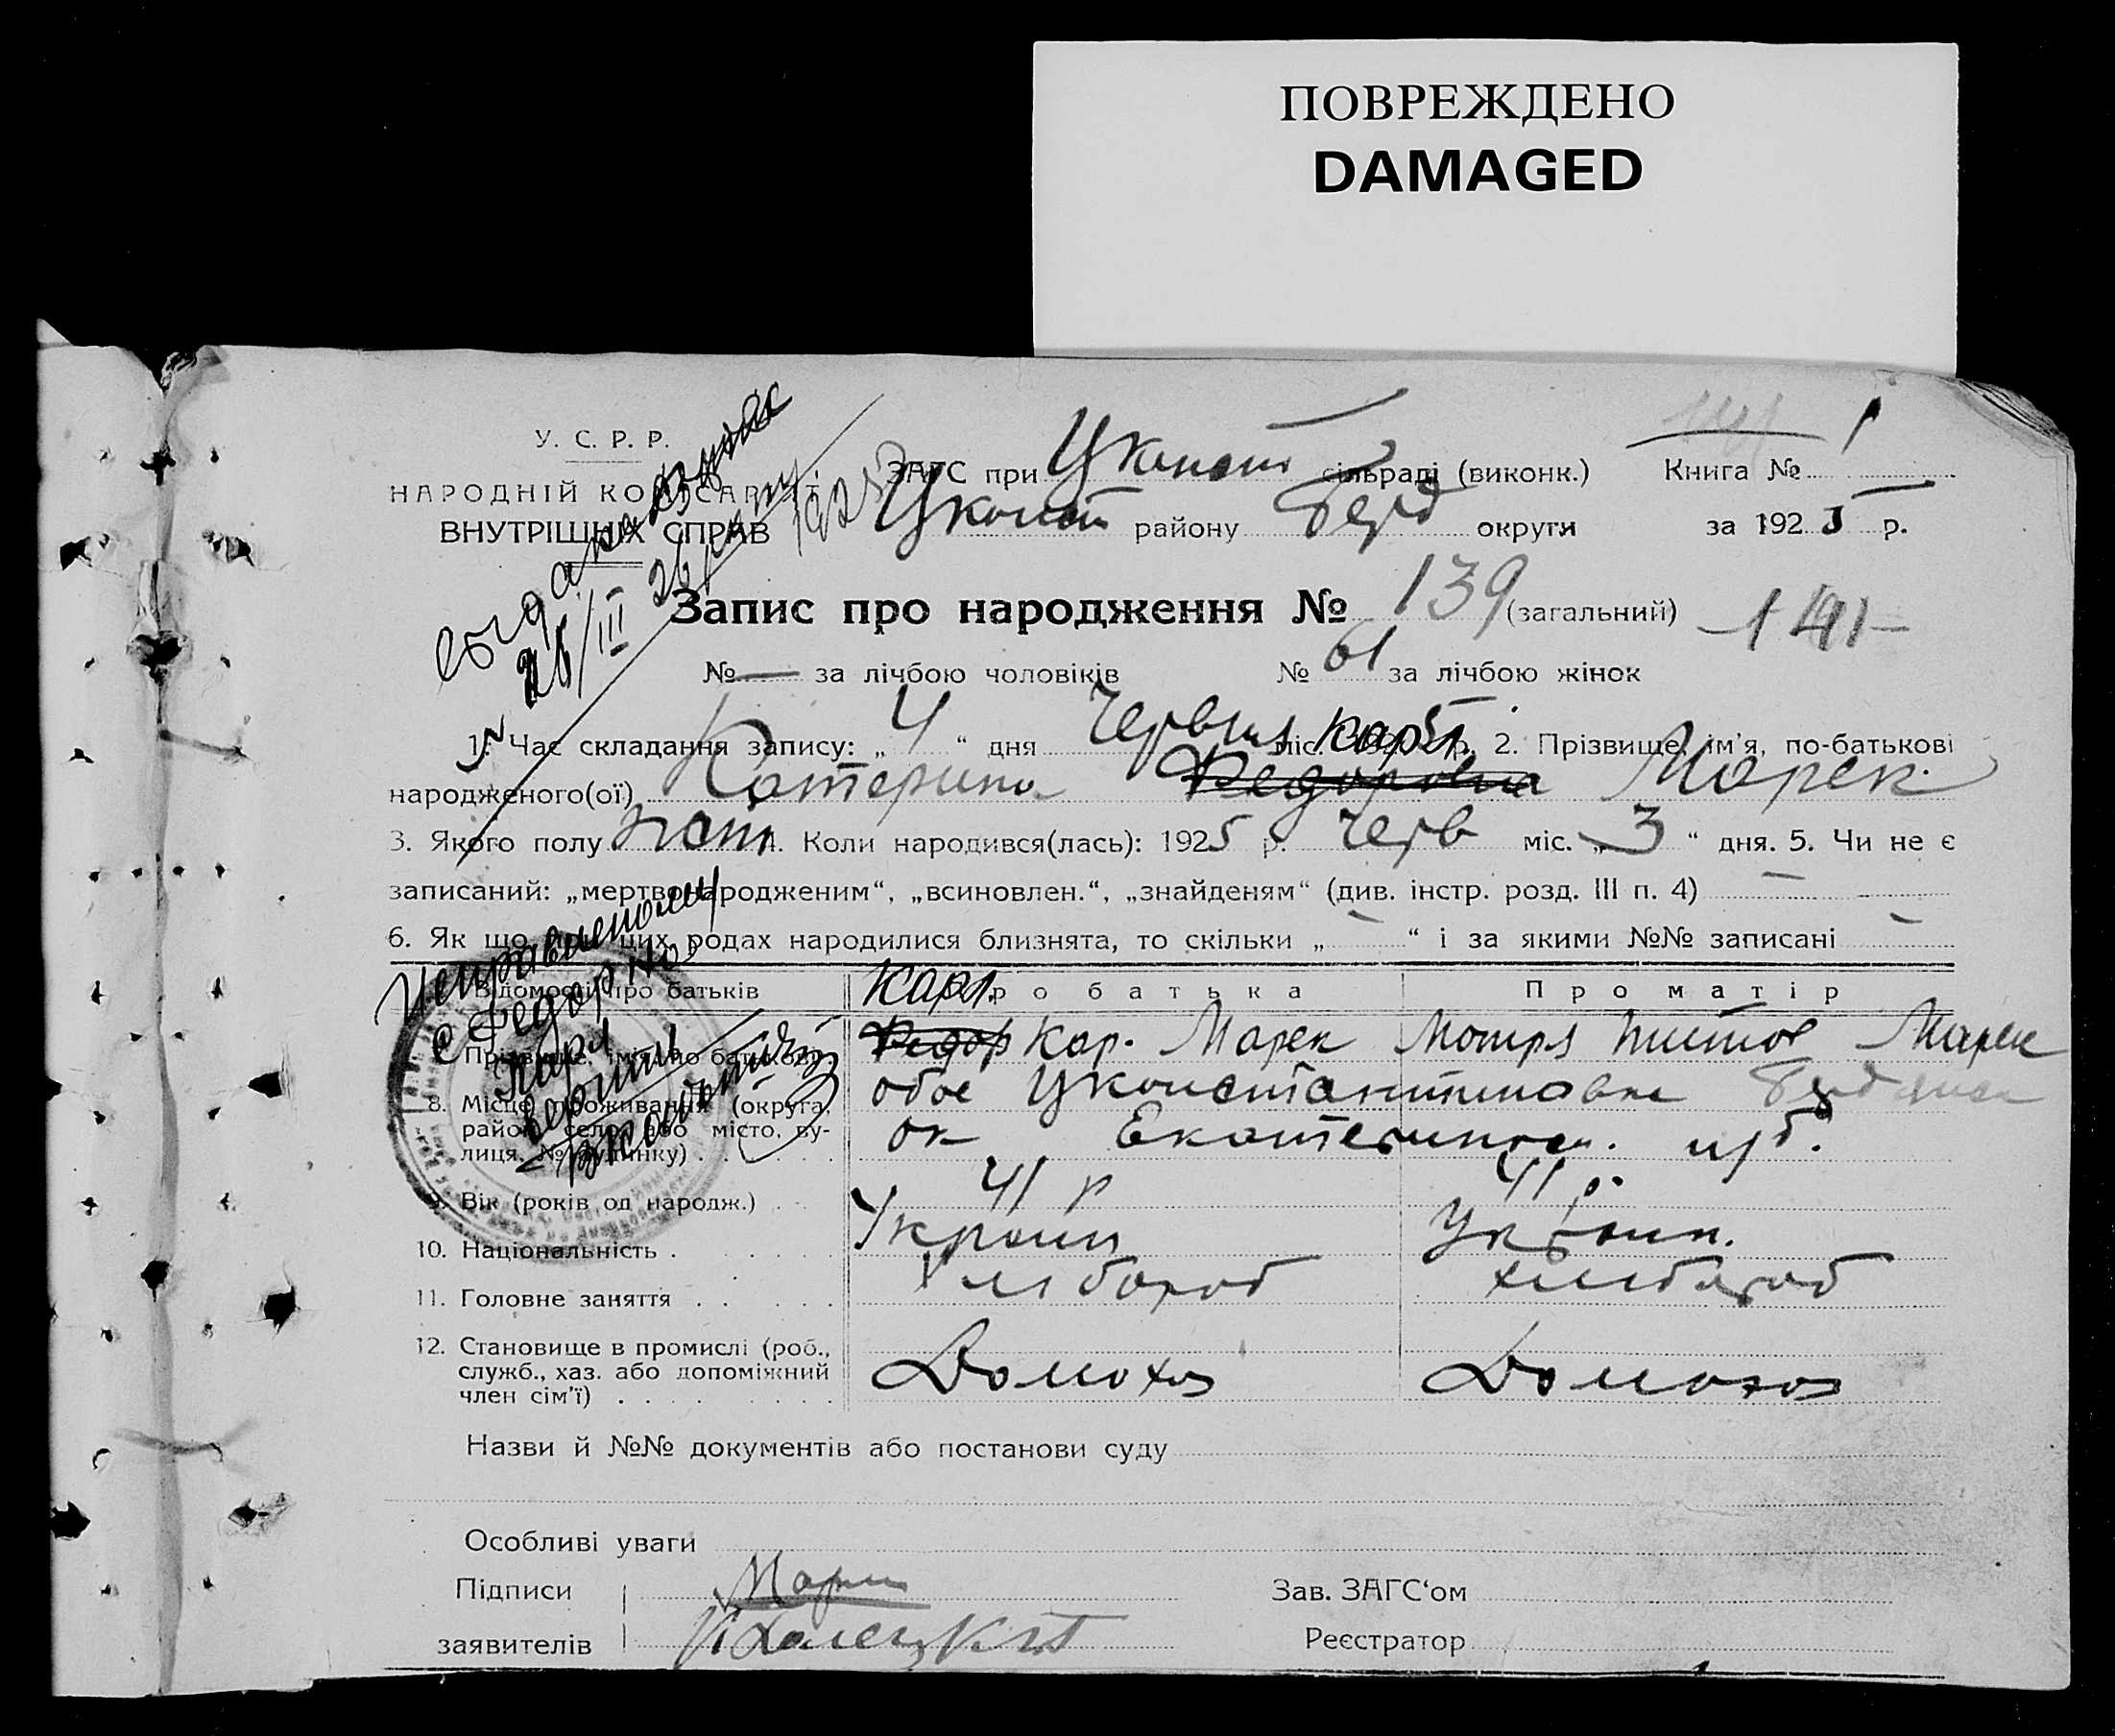 ПОВРЕЖДЕНО
DAMAGED
У. С. Р. Р.
НАРОДНІЙ КОМІСАРІЯТ
ВНУТРІШНІХ СПРАВ
ЗАГС при Цконст сільраді (виконк.) Книга № 1
Цконст району Берд округи за 1925 р.
Запис про народження № 139 (загальний) 141
№ — за лічбою чоловіків № 61 за лічбою жінок
1. Час складання запису: „4“ дня Червня міс. 192 р. 2. Прізвище, ім’я, по-батькові
Карл
народженого(ої) Катерина Федоровна Марек
3. Якого полу жін 4. Коли народився(лась): 1925 р. черв міс. „3“ дня. 5. Чи не є
записаний: „мертвонародженим“, „всиновлен.“, „знайденям“ (див. інстр. розд. III п. 4) —
6. Як що при цих родах народилися близнята, то скільки „—“ і за якими №№ записані —
Відомості про батьків Про батька Про матір
Карл
7. Прізвище, ім’я, по батькові Федор Кар. Марек Мотря Марек
8. Місце проживання (округа, обое Цконстантиновка
район, село, або місто, ву- ок Екатеринос.
лиця, № будинку)
9. Вік (років од народж.) 41 р 41 р.
10. Національність Україн Україн.
11. Головне заняття хлібороб хлібороб
12. Становище в промислі (роб.,
служб., хаз. або допоміжний Домохоз Домохоз
член сім’ї)
Назви й №№ документів або постанови суду
Особливі уваги
Підписи Марек Зав. ЗАГС‘ом
заявителів Реєстратор
26/III
Исправленному
с Федор на
Карл
верить